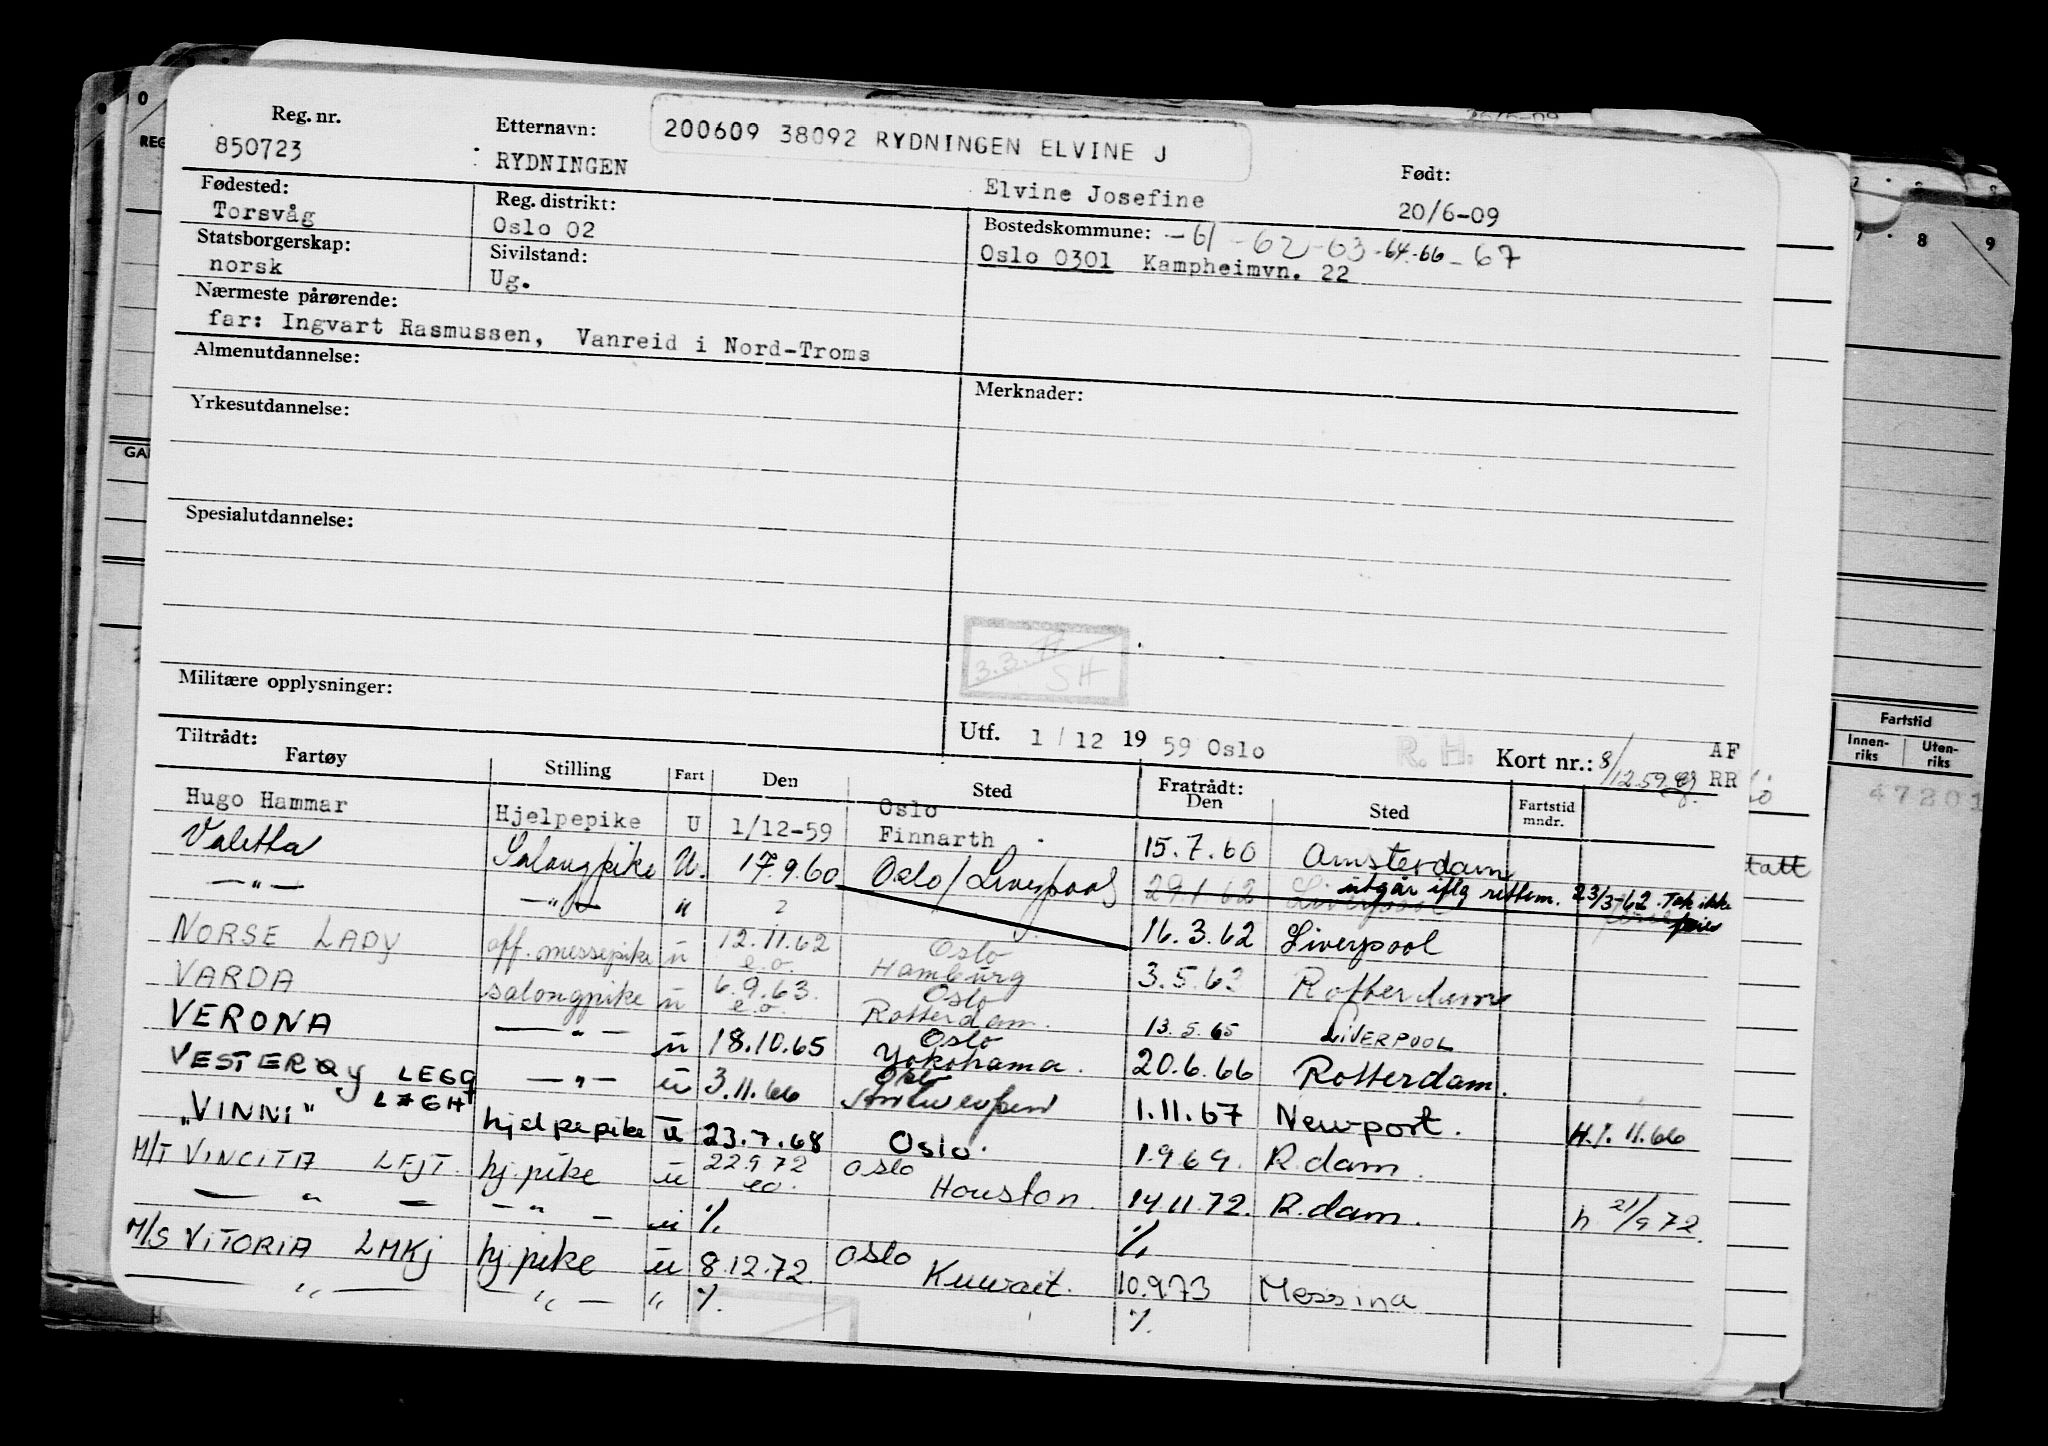 Reg. nr.
850723
Etternavn:
RYDNINGEN
200609 38092 RYDNINGEN ELVINE J
Elvine Josefine
Født:
20/6-09
Fødested:
Torsvåg
Reg. distrikt:
Oslo 02
Bostedskommune: -61-62-63-64-66-67
Oslo 0301 Kampheimvn. 22
Statsborgerskap:
norsk
Sivilstand:
Ug.
Nærmeste pårørende:
far: Ingvart Rasmussen, Vanreid i Nord-Troms
Almenutdannelse:
Merknader:
Yrkesutdannelse:
Spesialutdannelse:
SH
Militære opplysninger:
Utf. 1/12 19 59 Oslo
R. H.
Kort nr.: 8/12.59
AF
RR
Tiltrådt:
Fartøy Stilling Fart Den Sted Fratrådt: Den Sted Fartstid mndr.
Hugo Hammar Hjelpepike U 1/12-59 Oslo Finnarth 15.7.60 Amsterdam
Valetta Salongpike U. 17.9.60 Oslo/Liverpool 29.1.62 Liverpool utgår iflg rettem. 23/3-62. Tok ikke ferie
—"— —"— " 16.3.62 Liverpool
NORSE LADY off. messepike u 12.11.62 e.o. Oslo Hamburg 3.5.63 Rotterdam
VARDA salongpike u 6.9.63. e.o. Oslo Rotterdam. 13.5.65 LIVERPOOL
VERONA —"— u 18.10.65 Oslo Yokohama. 20.6.66 Rotterdam.
VESTERØY LEGQ —"— u 3.11.66 Oslo Antwerpen 1.11.67 Newport. H.1.11.66
"VINNI" LEGH hjelpepike u 23.7.68 Oslo. 1.9.69. R.dam.
M/T VINCITA LEJT. hj.pike u 22.9.72 eo. Oslo Houston. 14.11.72. R.dam. h. 21/9 72.
— " — — " — u ./. ./.
M/S VITORIA LMKJ hj.pike u 8.12.72 Oslo Kuwait. 10.9.73 Messina
— " — — " — " ./. ./.
Fartstid
Innen-riks
Uten-riks
47201
tatt